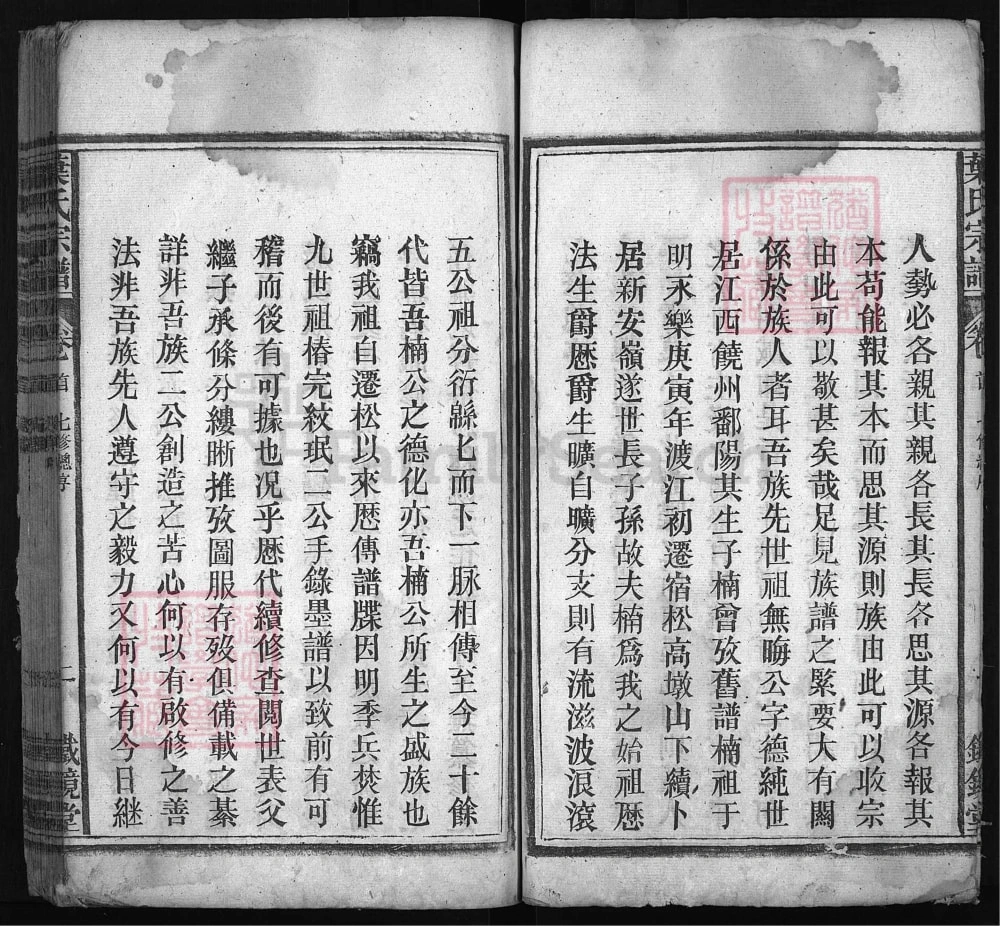 人勢必各親其親各長其長各思其源各報其
本苟能報其本而思其源則族由此可以收宗
由此可以敬甚矣哉足見族譜之緊要大有關
係於族人者耳吾族先世祖無晦公字德純世
居江西饒州鄱陽其生子楠曾攷舊譜楠祖于
明永樂庚寅年渡江初遷宿松高墩山下續卜
居新安嶺遂世長子孫故夫楠爲我之始祖厯
法生爵厯爵生曠自曠分支則有流滋波浪滾
五公祖分衍緜七而下一脉相傳至今二十餘
代皆吾楠公之德化亦吾楠公所生之盛族也
竊我祖自遷松以來厯傳譜牒因明季兵焚惟
九世祖椿完紋珉二公手錄墨譜以致前有可
稽而後有可據也況乎厯代續修查閱世表父
繼子承條分縷晰推攷圖服存歿俱備載之綦
詳非吾族二公創造之苦心何以有啟修之善
法非吾族先人遵守之毅力又何以有今日継
葉氏宗譜
卷首
七修總序
二
鐵鏡堂
FamilySearch